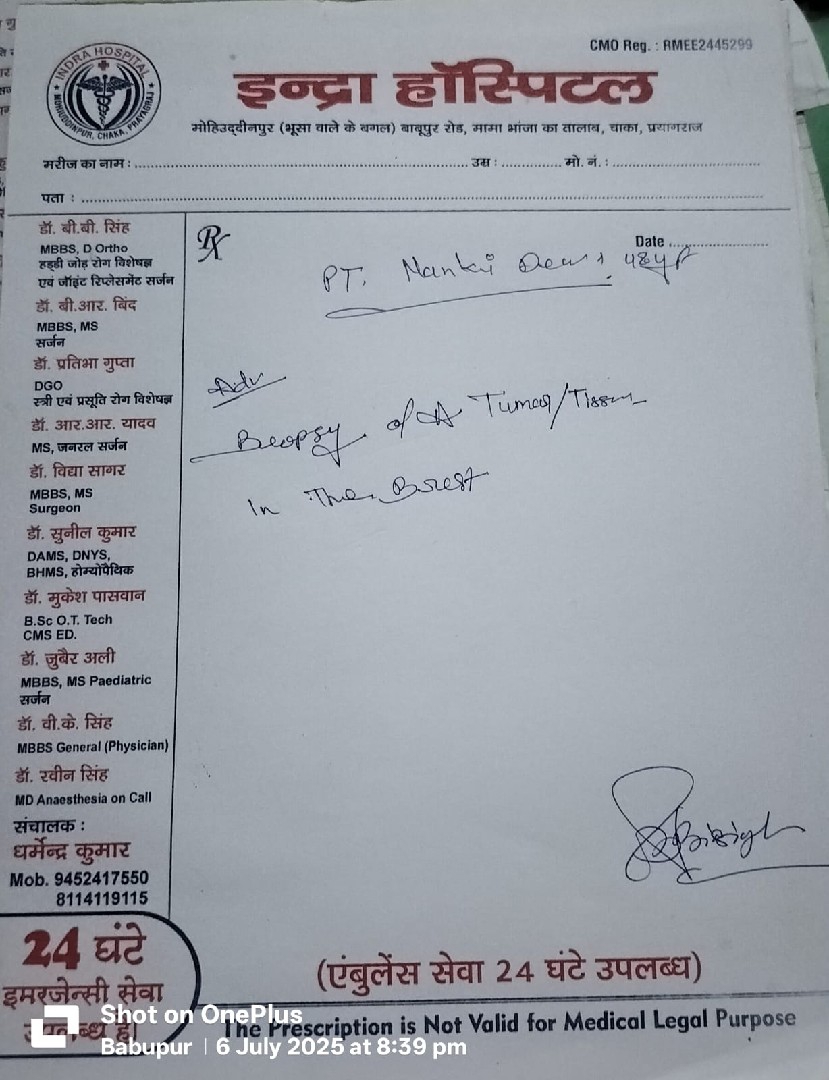 CMO Reg. : RMEE2445299
INDRA HOSPITAL
MOHIUDDINPUR, CHAKA, PRAYAGRAJ
इन्द्रा हॉस्पिटल
मोहिउद्दीनपुर (भूसा वाले के बगल) बाबूपुर रोड, मामा भांजा का तालाब, चाका, प्रयागराज
मरीज का नाम : उम्र : मो. नं. :
पता :
डॉ. बी.बी. सिंह
MBBS, D Ortho
हड्डी जोड़ रोग विशेषज्ञ
एवं जॉइंट रिप्लेसमेंट सर्जन
डॉ. बी.आर. बिंद
MBBS, MS
सर्जन
डॉ. प्रतिभा गुप्ता
DGO
स्त्री एवं प्रसूति रोग विशेषज्ञ
डॉ. आर.आर. यादव
MS, जनरल सर्जन
डॉ. विद्या सागर
MBBS, MS
Surgeon
डॉ. सुनील कुमार
DAMS, DNYS,
BHMS, होम्योपैथिक
डॉ. मुकेश पासवान
B.Sc O.T. Tech
CMS ED.
डॉ. जुबैर अली
MBBS, MS Paediatric
सर्जन
डॉ. वी.के. सिंह
MBBS General (Physician)
डॉ. रवीन सिंह
MD Anaesthesia on Call
संचालक :
धर्मेन्द्र कुमार
Mob. 9452417550
8114119115
24 घंटे
इमरजेन्सी सेवा
उपलब्ध है।
Rx
Date
PT. Nanki 48yf
Adv
Biopsy of A Tumor/Tissue
In The Brest
(एंबुलेंस सेवा 24 घंटे उपलब्ध)
The Prescription is Not Valid for Medical Legal Purpose
Shot on OnePlus
Babupur | 6 July 2025 at 8:39 pm